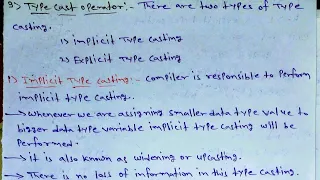 9:> Type cast operator:- There are two types of Type
casting.
1) implicit Type casting
2) Explicit Type casting
1) Implicit Type casting:- Compiler is responsible to perform
implicit type casting.
→ whenever we are assigning smaller data type value to
bigger data type variable implicit type casting will be
performed.
→ it is also known as widening or upcasting.
→ There is no loss of information in this type casting.